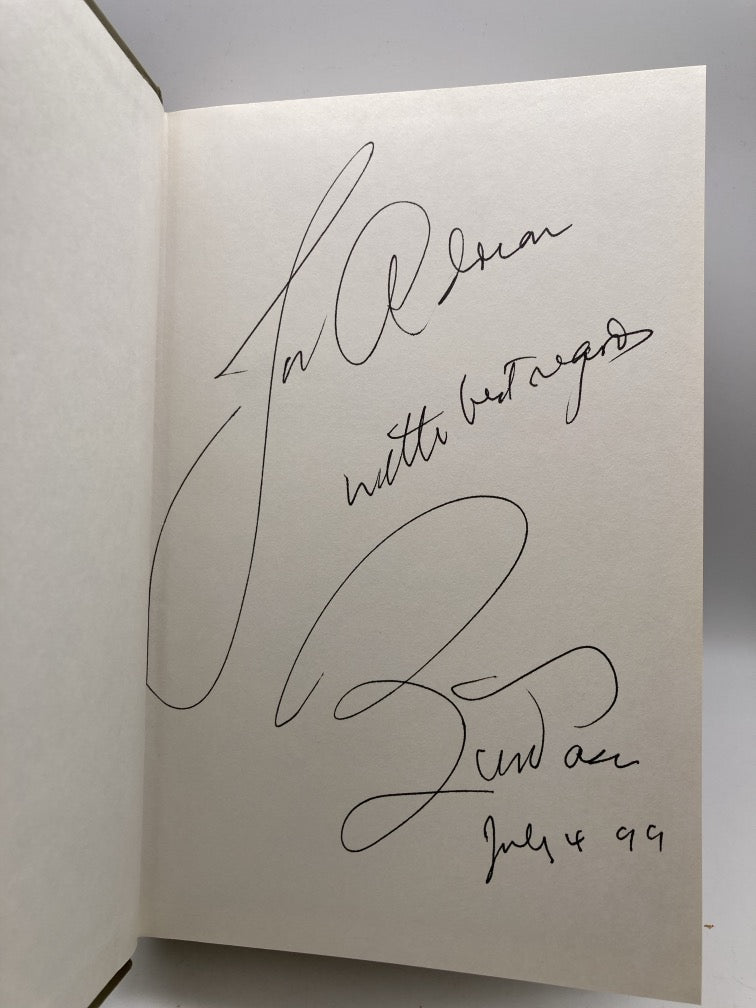 For Adrian
with best regards
July 4 99